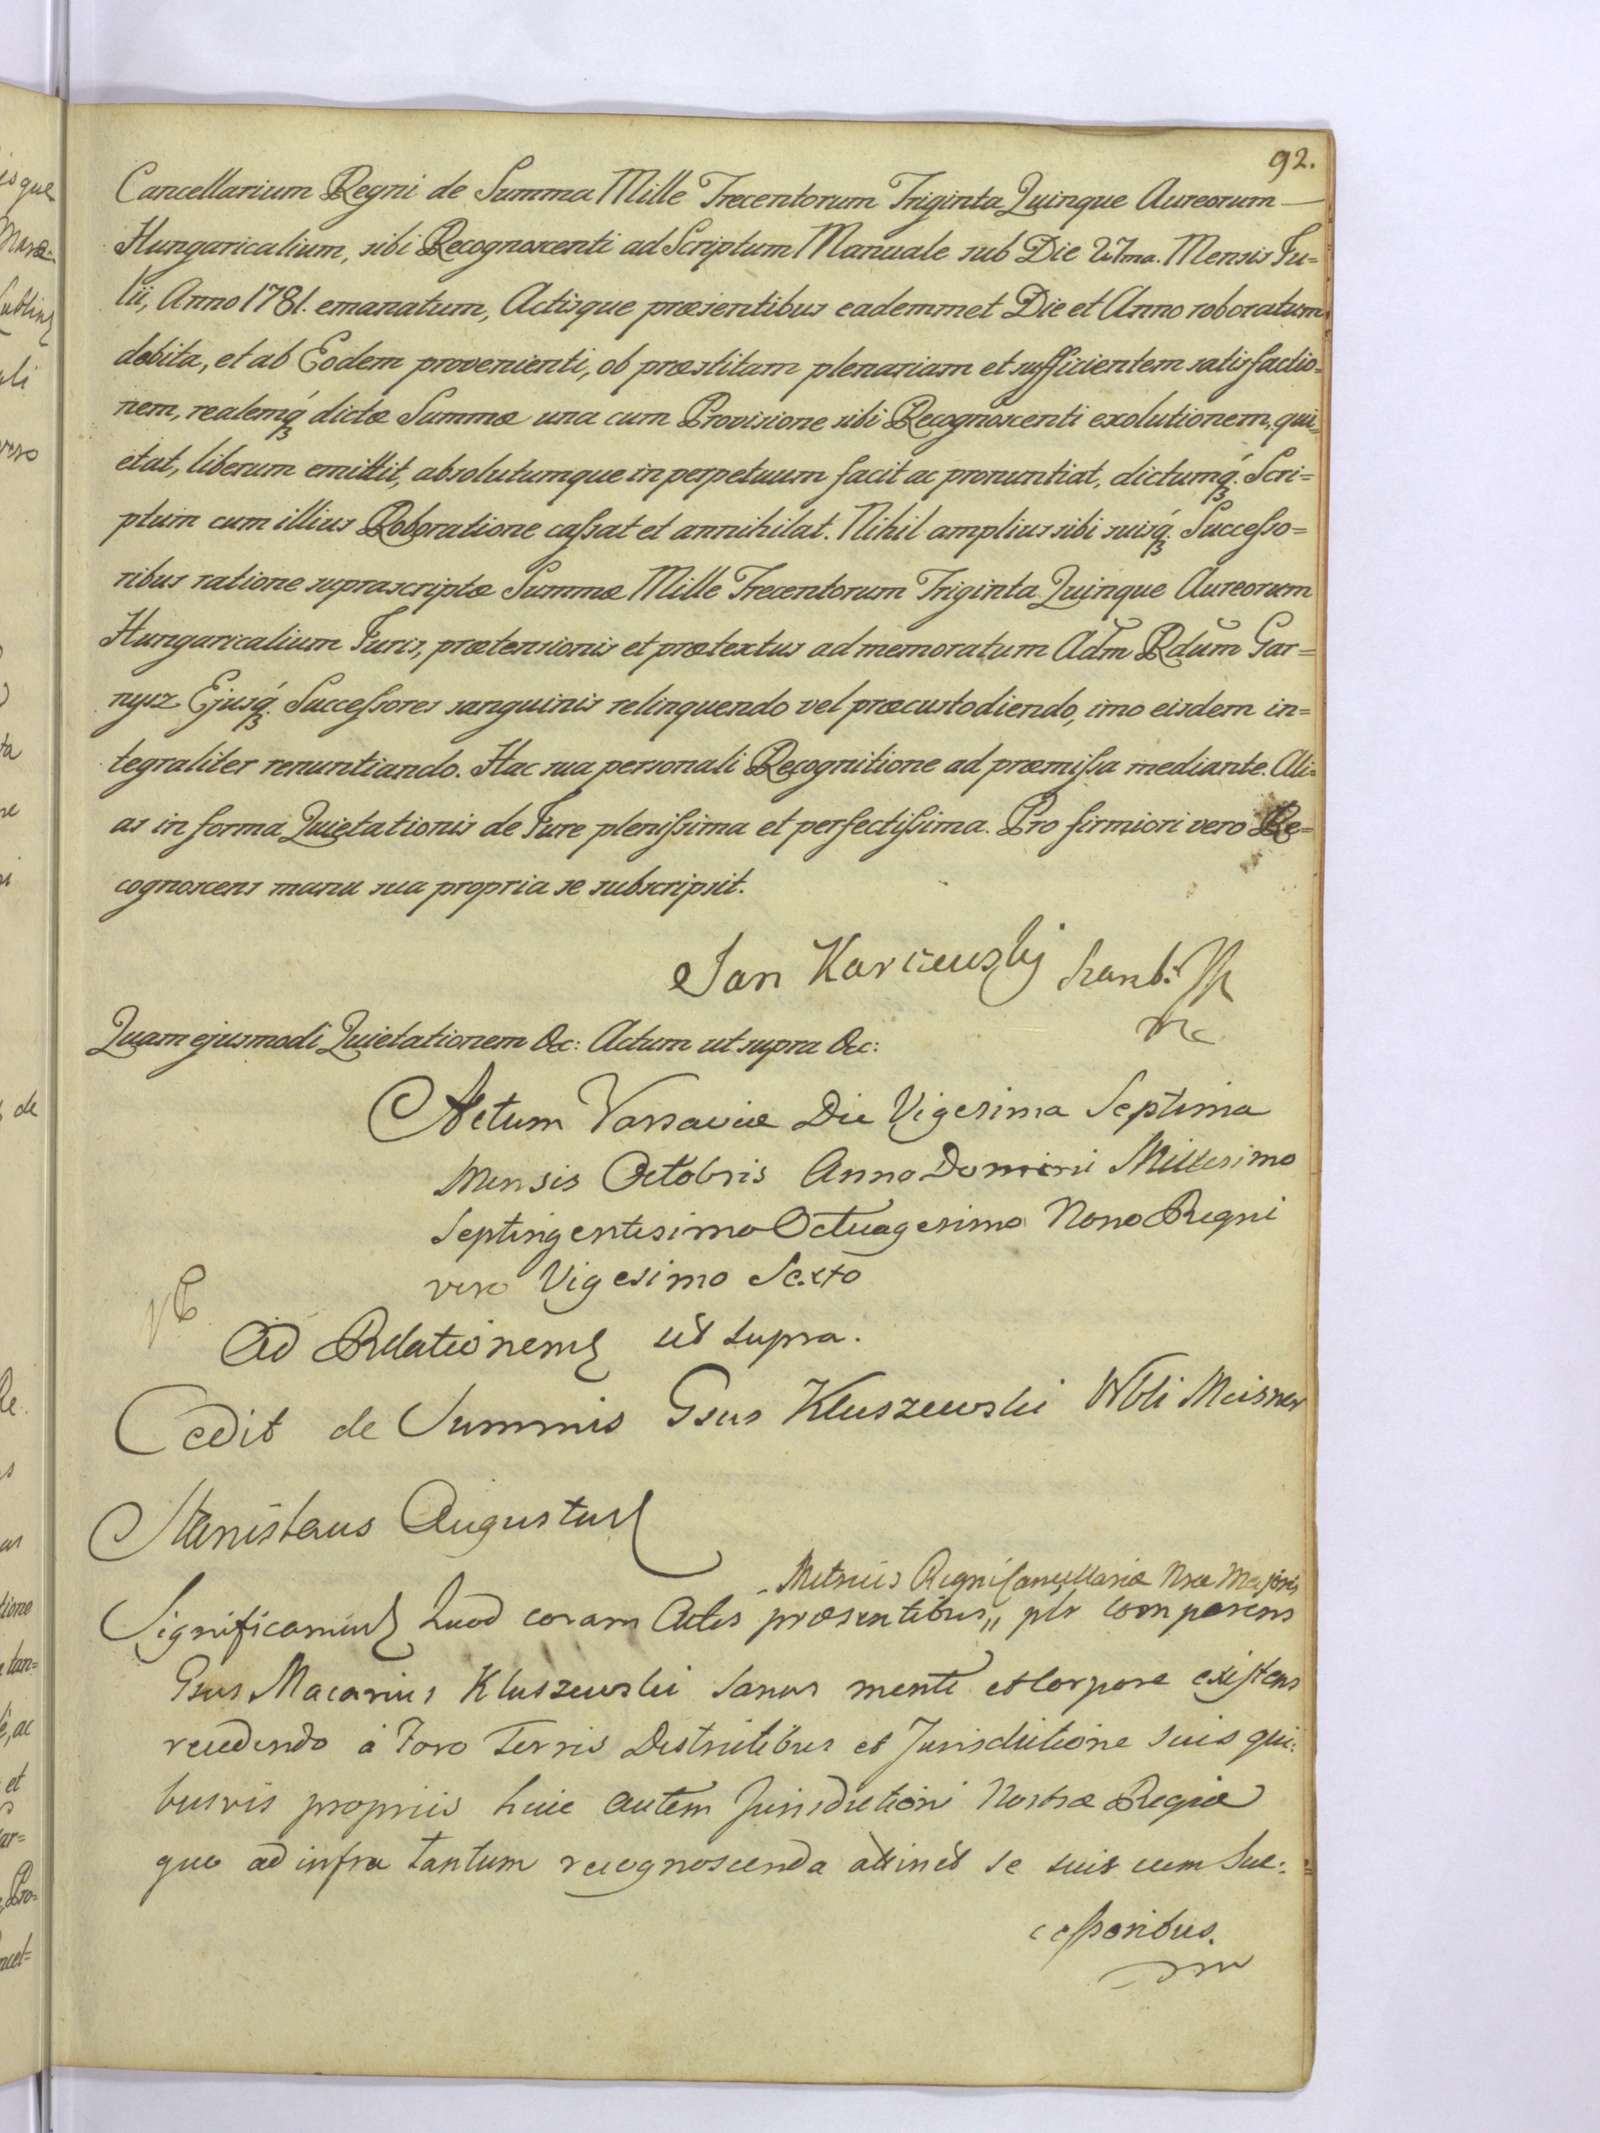 92.
Cancellarium Regni de Summa Mille Trecentorum Triginta Quinque Aureorum —
Hungaricalium, sibi Recognoscenti ad Scriptum Manuale sub Die Mensis Ju=
lii, Anno 1781. emanatum, Actisque præsentibus eademmet Die et Anno roboratum
debita, et ab Eodem provenienti, ob præstitam plenariam et sufficientem satisfactio=
nem, realemq́ꝫ dictæ Summæ una cum Provisione sibi Recognoscenti exolutionem, qui=
etat, liberum emittit, absolutumque in perpetuum facit ac pronuntiat, dictumq́ꝫ. Scri=
ptum cum illius Roboratione caſsat et annihilat. Nihil amplius sibi suisq́ꝫ. Succeſso=
ribus ratione suprascriptæ Summæ Mille Trecentorum Triginta Quinque Aureorum
Hungaricalium Juris, prætensionis et prætextus ad memoratum Adm̃ Rdũm Gar=
nysz Ejusq́ꝫ. Succeſsores sanguinis relinquendo vel præcustodiendo, imo eisdem in=
tegraliter renuntiando. Hac sua personali Recognitione ad præmiſsa mediante. Ali=
as in forma Quietationis de Jure pleniſsima et perfectiſsima. Pro firmiori vero Re=
cognoscens manu sua propria se subscripsit.
Jan Karczewsky Szamb:
Quam ejusmodi Quietationem &c: Actum ut supra &c:
Actum Varsaviæ Die Vigesima Septima
Mensis Octobris Anno Domini Millesimo
Septingentesimo Octuagesimo Nono Regni
vero Vigesimo Sexto
Ad Relationem ut supra.
Cedit de Summis Gsus Kluszewski Nbli Meisner
Stanislaus Augustus
Metrices Regni Cancellariæ Nræ Majoris
Significamus Quod coram Actis præsentibus,, plr comparens
Gsus Macarius Kluszewski Sanus mente et Corpore existens
recedendo á Foro Terris Districtibus et Jurisdictione suis qui:
busvis propriis huic autem Jurisdictioni Nostræ Regiæ
quo ad infra tantum recognoscenda attinet se suis cum Suc:=
ceſsoribus.